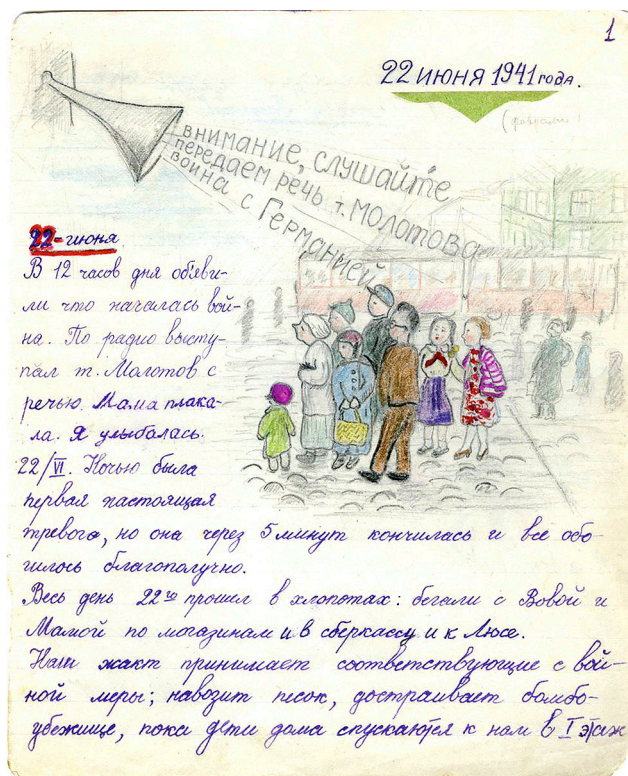 1
22 июня 1941 года.
внимание, слушайте
передаем речь т. Молотова
война с Германией
22-июня
В 12 часов дня обяви-
ли что началась вой-
на. По радио высту-
пал т. Молотов с
речью. Мама плака-
ла. Я улыбалась.
22/VI. Ночью была
первая настоящая
тревога, но она через 5 минут кончилась и все обо-
шлось благополучно.
Весь день 22го прошел в хлопотах: бегали с Вовой и
Мамой по магазинам и в сберкассу и к Люсе.
Наш жакт принимает соответствующие с вой-
ной меры; навозит песок, достраивает бомбо-
убежище, пока дети дома спускаются к нам в I этаж